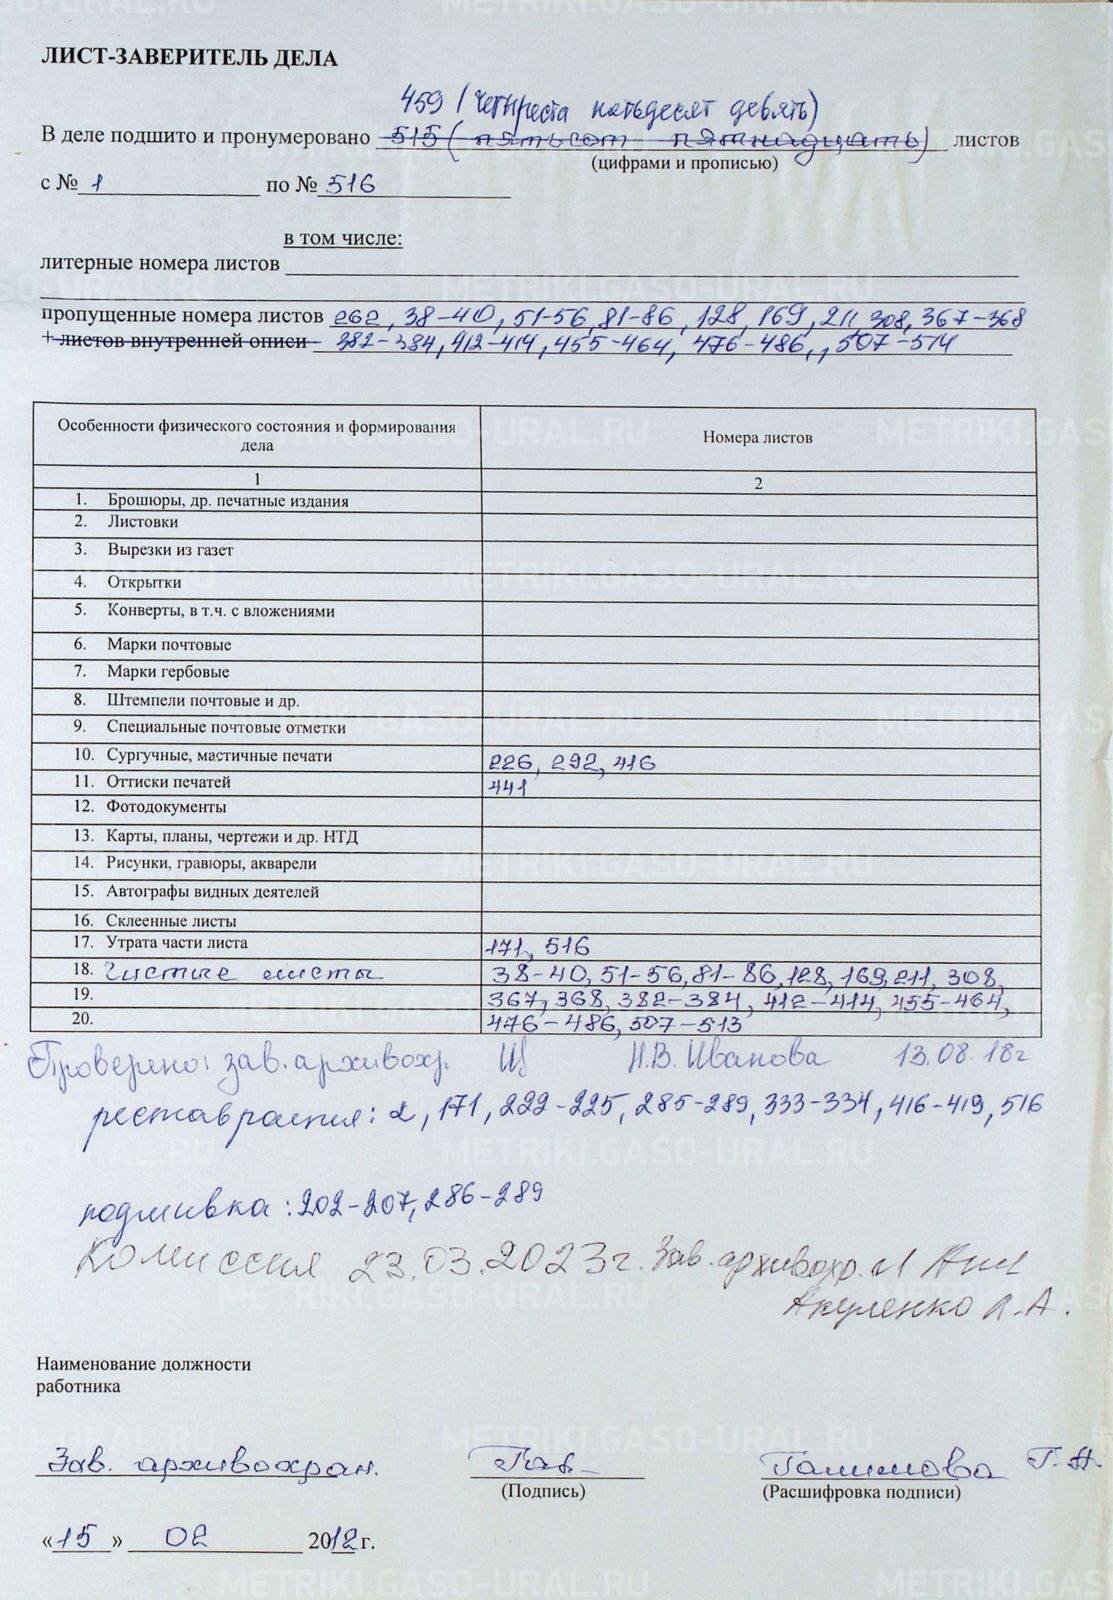 ЛИСТ-ЗАВЕРИТЕЛЬ ДЕЛА
459 (четыреста пятьдесят девять)
В деле подшито и пронумеровано 515 (пятьсот пятнадцать) листов
(цифрами и прописью)
с № 1 по № 516
в том числе:
литерные номера листов
пропущенные номера листов 262, 38-40, 51-56, 81-86, 128, 169, 211, 308, 367-368
+ листов внутренней описи 382-384, 412-414, 455-464, 476-486, , 507-514
Особенности физического состояния и формирования дела Номера листов
1 2
1. Брошюры, др. печатные издания
2. Листовки
3. Вырезки из газет
4. Открытки
5. Конверты, в т.ч. с вложениями
6. Марки почтовые
7. Марки гербовые
8. Штемпели почтовые и др.
9. Специальные почтовые отметки
10. Сургучные, мастичные печати 226, 292, 416
11. Оттиски печатей 441
12. Фотодокументы
13. Карты, планы, чертежи и др. НТД
14. Рисунки, гравюры, акварели
15. Автографы видных деятелей
16. Склеенные листы
17. Утрата части листа 171, 516
18. Чистые листы 38-40, 51-56, 81-86, 128, 169, 211, 308,
19. 367, 368, 382-384, 412-414, 455-464,
20. 476-486, 507-513
Проверено: зав. архивохр. Н.В. Иванова 13.08.18г
реставрация: 2, 171, 222-225, 285-289, 333-334, 416-419, 516
подшивка: 202-207, 286-289
Комиссия 23.03.2023г. Зав. архивохр.
Акуленко А.А.
Наименование должности
работника
Зав. архивохран. Галимова Г.Н.
(Подпись) (Расшифровка подписи)
«15» 02 2012 г.
METRIKI.GASO-URAL.RU